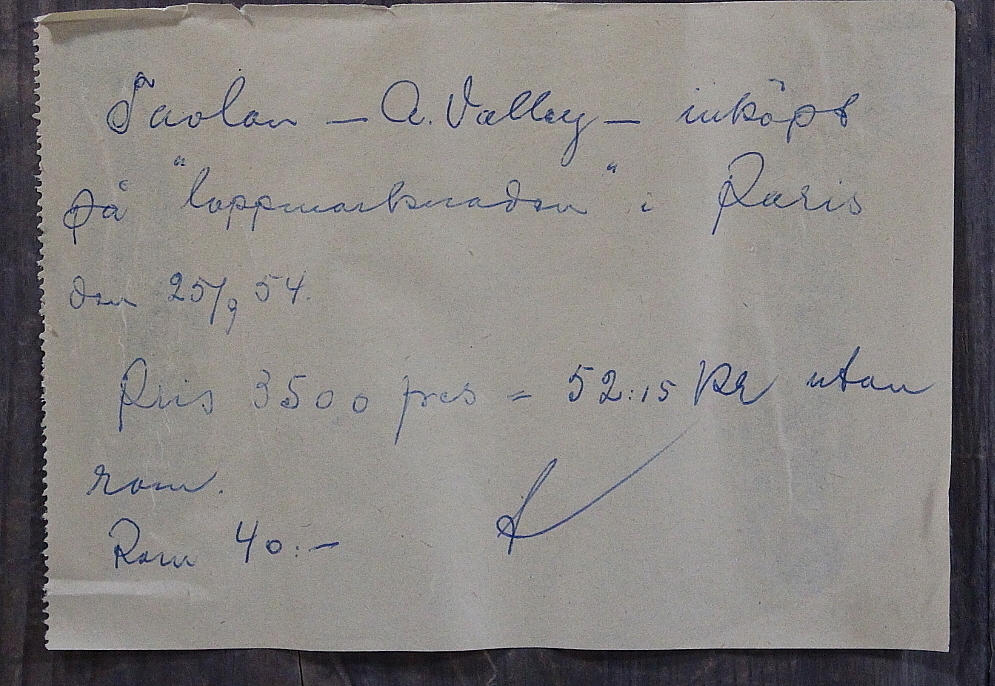 Tavlan – A. Valley – inköpt
på "loppmarknaden" i Paris
den 25/9 54.
Pris 3500 frcs = 52:15 kr utan
ram.
Ram 40:-